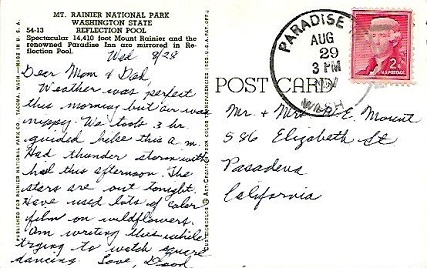 MT. RAINIER NATIONAL PARK
WASHINGTON STATE
54-13 REFLECTION POOL
Spectacular 14,410 foot Mount Rainier and the
renowned Paradise Inn are mirrored in Re-
flection Pool.
Wed 8/28
Dear Mom & Dad,
Weather was perfect
this morning but air was
nippy. We took 3 hr.
guided hike this a.m.
Had thunder storm with
hail this afternoon. The
stars are out tonight.
Have used lots of color
film on wildflowers.
Am writing this while
trying to watch square
dancing. Love,
POST CARD
PARADISE
AUG
29
3 PM
WASH
2¢
U.S. POSTAGE
Mr. & Mrs. Mount
586 Elizabeth St
Pasadena
California